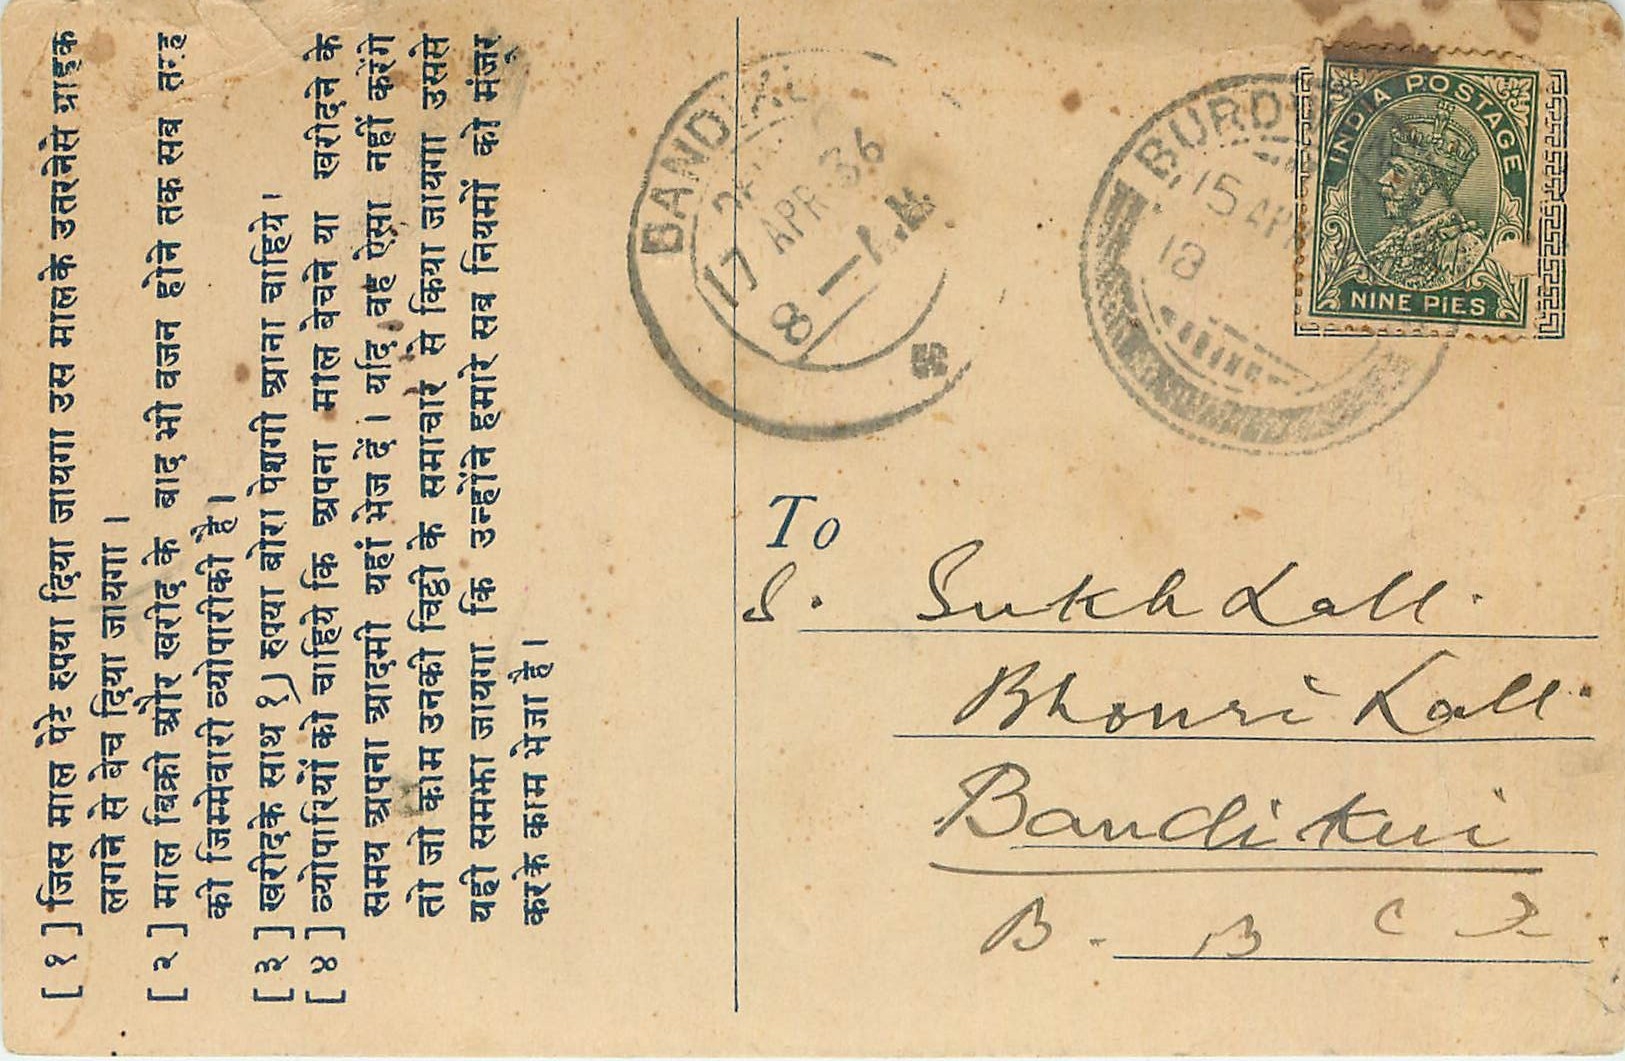 [ १ ] जिस माल पेटे रुपया दिया जायगा उस मालके उतरनेसे ग्राहक
लगाने से बेच दिया जायगा ।
[ २ ] माल बिक्री और खरीद के बाद भी वजन होने तक सब तरह
की जिम्मेवारी व्योपारीकी है ।
[ ३ ] खरीदके साथ १) रुपया बोरा पेशगी आना चाहिये ।
[ ४ ] व्योपारियों को चाहिये कि अपना माल बेचने या खरीदने के
समय अपना आदमी यहां भेज दें । यदि वह ऐसा नहीं करेंगे
तो जो काम उनकी चिट्ठी के समाचार से किया जायगा उससे
यही समझा जायगा कि उन्होंने हमारे सब नियमों को मंजूर
करके काम भेजा है ।
BANDIKUI
17 APR 36
8-A.M
BURD
15 APR
18
INDIA POSTAGE
NINE PIES
To
S. Sukh Lall.
Bhonri Lall.
Bandikui
B. B C I.